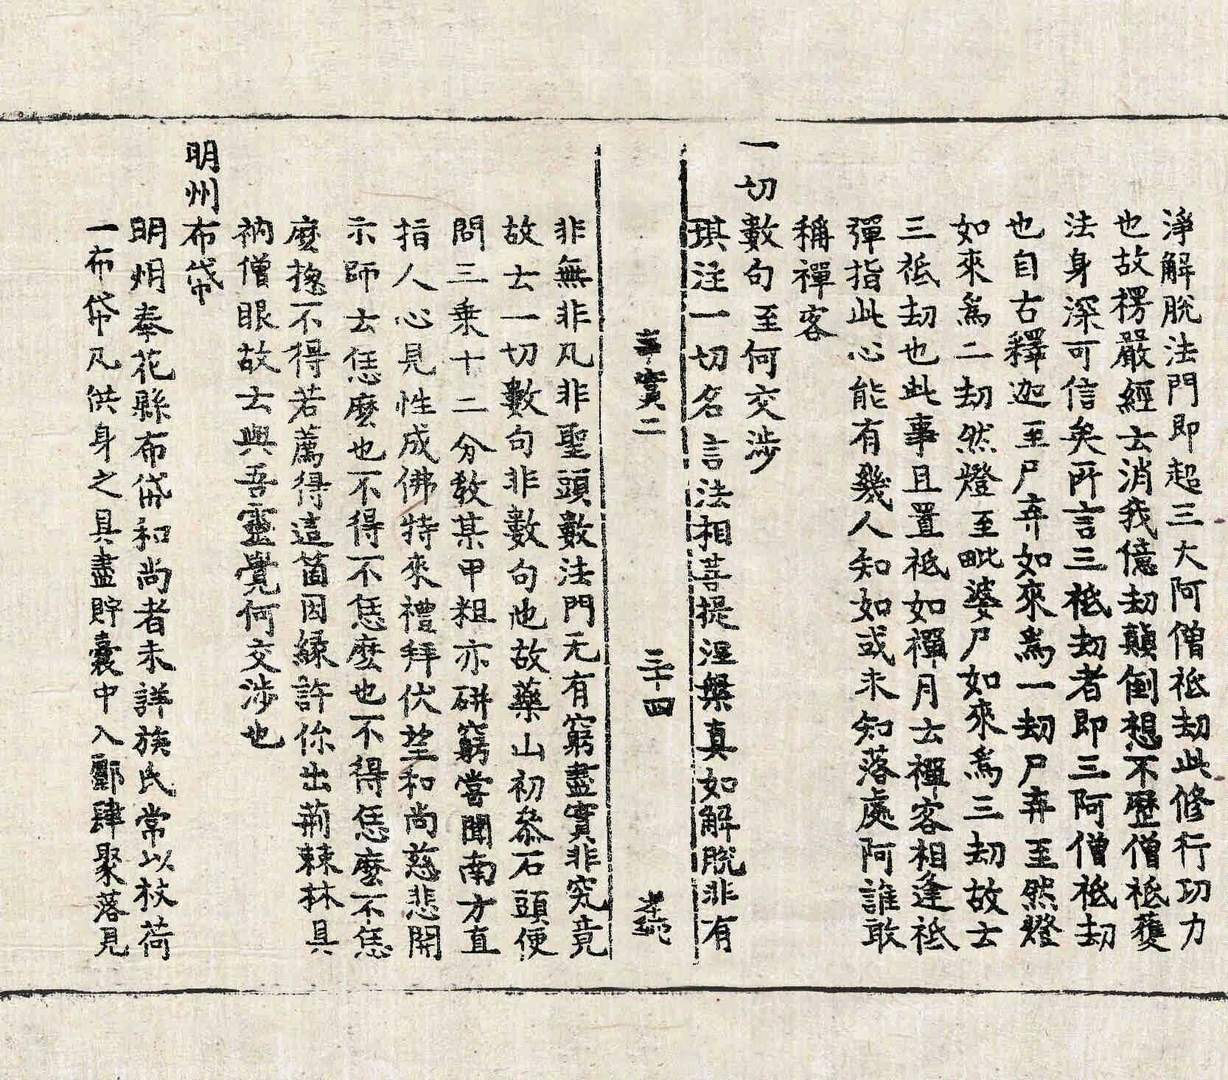 淨解脫法門即超三大阿僧祗劫此修行功力
也故楞嚴經云消我億劫顛倒想不歷僧祗獲
法身深可信矣所言三祗劫者即三阿僧祗劫
也自古釋迦至尸弃如來爲一劫尸弃至然燈
如來爲二劫然燈至毗婆尸如來爲三劫故云
三祗劫也此事且置祗如禪月云禪客相逢祗
彈指此心能有幾人知如或未知落處阿誰敢
稱禪客
一切數句至何交涉
琪注一切名言法相菩提涅槃真如解脫非有
實二
三十四
非無非凡非聖頭數法門无有窮盡實非究竟
故云一切數句非數句也故藥山初叅石頭便
問三乗十二分教某甲粗亦硏窮嘗聞南方直
指人心見性成佛特來禮拜伏望和尚慈悲開
示師云恁麽也不得不恁麽也不得恁麽不恁
麽揔不得若薦得這箇因緣許你出荊棘林具
衲僧眼故云與吾靈覺何交涉也
明州布袋
明州奉花縣布袋和尚者未詳族氏常以杖荷
一布袋凡供身之具盡貯囊中入鄽肆聚落見